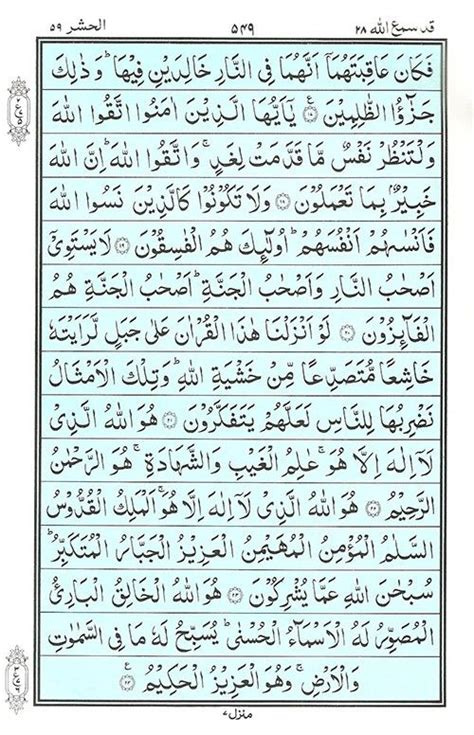 قد سمع الله ٢٨ ٥٤٩ الحشر ٥٩
فَكَانَ عَاقِبَتَهُمَآ اَنَّهُمَا فِى النَّارِ خَالِدَيْنِ فِيْهَا ؕ وَذٰلِكَ
جَزٰٓؤُا الظّٰلِمِيْنَ ۝١٧ يٰٓاَيُّهَا الَّذِيْنَ اٰمَنُوا اتَّقُوا اللّٰهَ
وَلْتَنْظُرْ نَفْسٌ مَّا قَدَّمَتْ لِغَدٍ ۚ وَاتَّقُوا اللّٰهَ ؕ اِنَّ اللّٰهَ
خَبِيْرٌۢ بِمَا تَعْمَلُوْنَ ۝١٨ وَلَا تَكُوْنُوْا كَالَّذِيْنَ نَسُوا اللّٰهَ
فَاَنْسٰىهُمْ اَنْفُسَهُمْ ؕ اُولٰٓئِكَ هُمُ الْفٰسِقُوْنَ ۝١٩ لَا يَسْتَوِىْٓ
اَصْحٰبُ النَّارِ وَاَصْحٰبُ الْجَنَّةِ ؕ اَصْحٰبُ الْجَنَّةِ هُمُ
الْفَآئِزُوْنَ ۝٢٠ لَوْ اَنْزَلْنَا هٰذَا الْقُرْاٰنَ عَلٰى جَبَلٍ لَّرَاَيْتَهٗ
خَاشِعًا مُّتَصَدِّعًا مِّنْ خَشْيَةِ اللّٰهِ ؕ وَتِلْكَ الْاَمْثَالُ
نَضْرِبُهَا لِلنَّاسِ لَعَلَّهُمْ يَتَفَكَّرُوْنَ ۝٢١ هُوَ اللّٰهُ الَّذِىْ
لَآ اِلٰهَ اِلَّا هُوَ ۚ عٰلِمُ الْغَيْبِ وَالشَّهَادَةِ ۚ هُوَ الرَّحْمٰنُ
الرَّحِيْمُ ۝٢٢ هُوَ اللّٰهُ الَّذِىْ لَآ اِلٰهَ اِلَّا هُوَ ۚ اَلْمَلِكُ الْقُدُّوْسُ
السَّلٰمُ الْمُؤْمِنُ الْمُهَيْمِنُ الْعَزِيْزُ الْجَبَّارُ الْمُتَكَبِّرُ ؕ
سُبْحٰنَ اللّٰهِ عَمَّا يُشْرِكُوْنَ ۝٢٣ هُوَ اللّٰهُ الْخَالِقُ الْبَارِئُ
الْمُصَوِّرُ لَهُ الْاَسْمَآءُ الْحُسْنٰى ؕ يُسَبِّحُ لَهٗ مَا فِى السَّمٰوٰتِ
وَالْاَرْضِ ۚ وَهُوَ الْعَزِيْزُ الْحَكِيْمُ ۝٢٤
منزل ٧